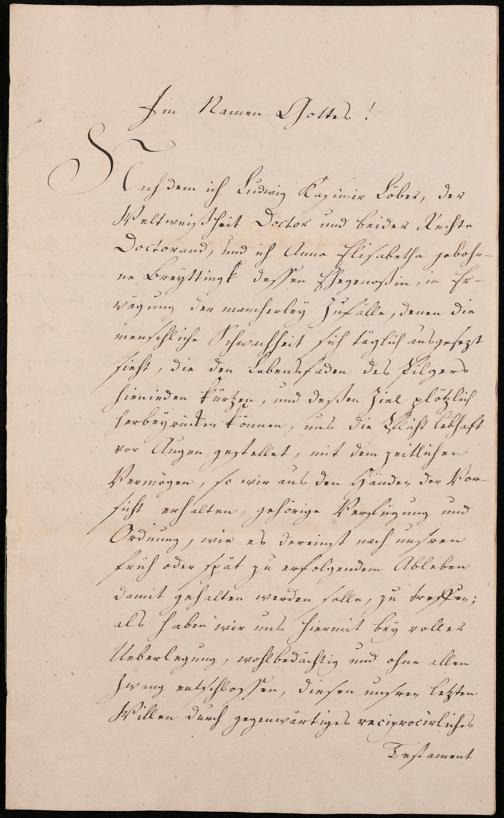 Im Namen Gottes!
Nachdem ich Ludwig Casimir Löber, der
Weltweißheit Doctor und beider Rechte
Doctorand, und ich Anna Elisabetha gebohr-
ne dessen Ehegenoßin, in Er-
wägung der mancherley Zufälle, denen die
menschliche Schwachheit sich täglich ausgesezt
sieht, die den Lebensfaden des Pilgers
hienieden kürzen, und deßen Ziel plötzlich
herbeyrücken können, uns die Pflicht lebhaft
vor Augen gestellet, mit dem zeitlichen
Vermögen, so wir aus den Händen der Vor-
sicht erhalten, gehörige Verfügung und
Ordnung, wie es dereinst nach unsren
früh oder spät zu erfolgendem Ableben
damit gehalten werden solle, zu treffen;
als haben wir uns hiermit bey voller
Ueberlegung, wohlbedächtig und ohne allen
Zwang entschlossen, diesen unsren letzten
Willen durch gegenwärtiges reciprocirliches
Testament